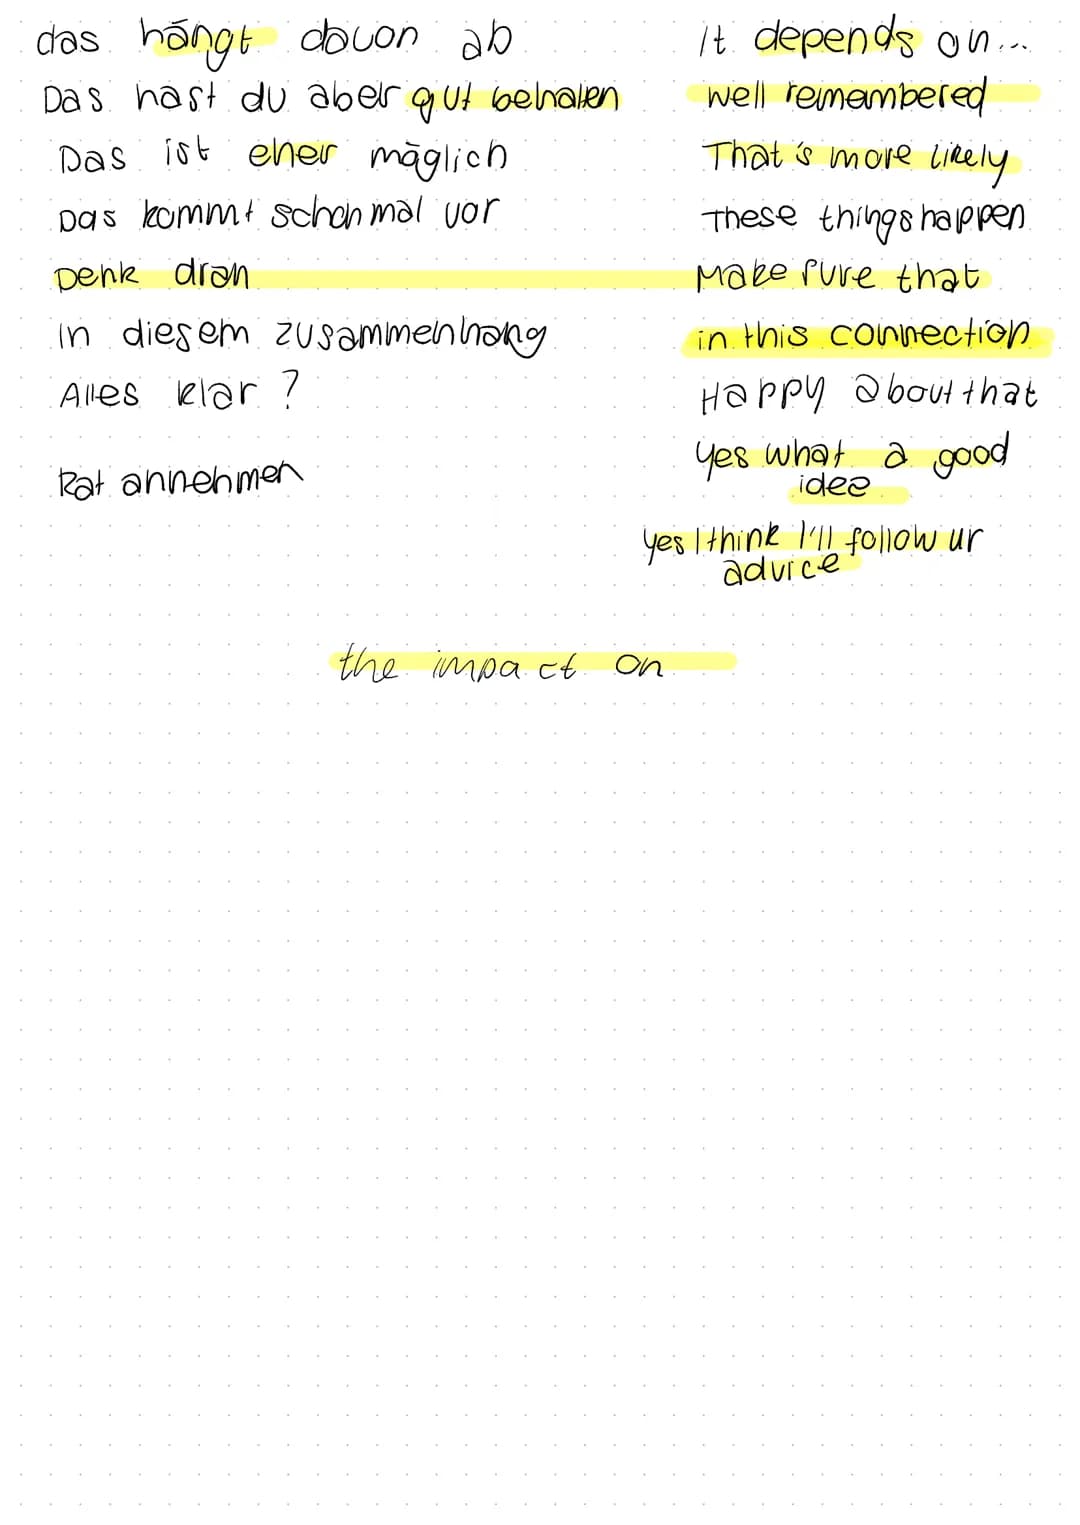 das hängt davon ab It depends on...
Das hast du aber gut behalen well remembered
Das ist eher möglich That's more likely
Das kommt schon mal vor These things happen
Denk dran Make sure that
In diesem zusammenhang in this connection
Alles klar ? Happy about that
Yes what a good
Rat annehmen idee
yes I think I'll follow ur
advice
the impact on